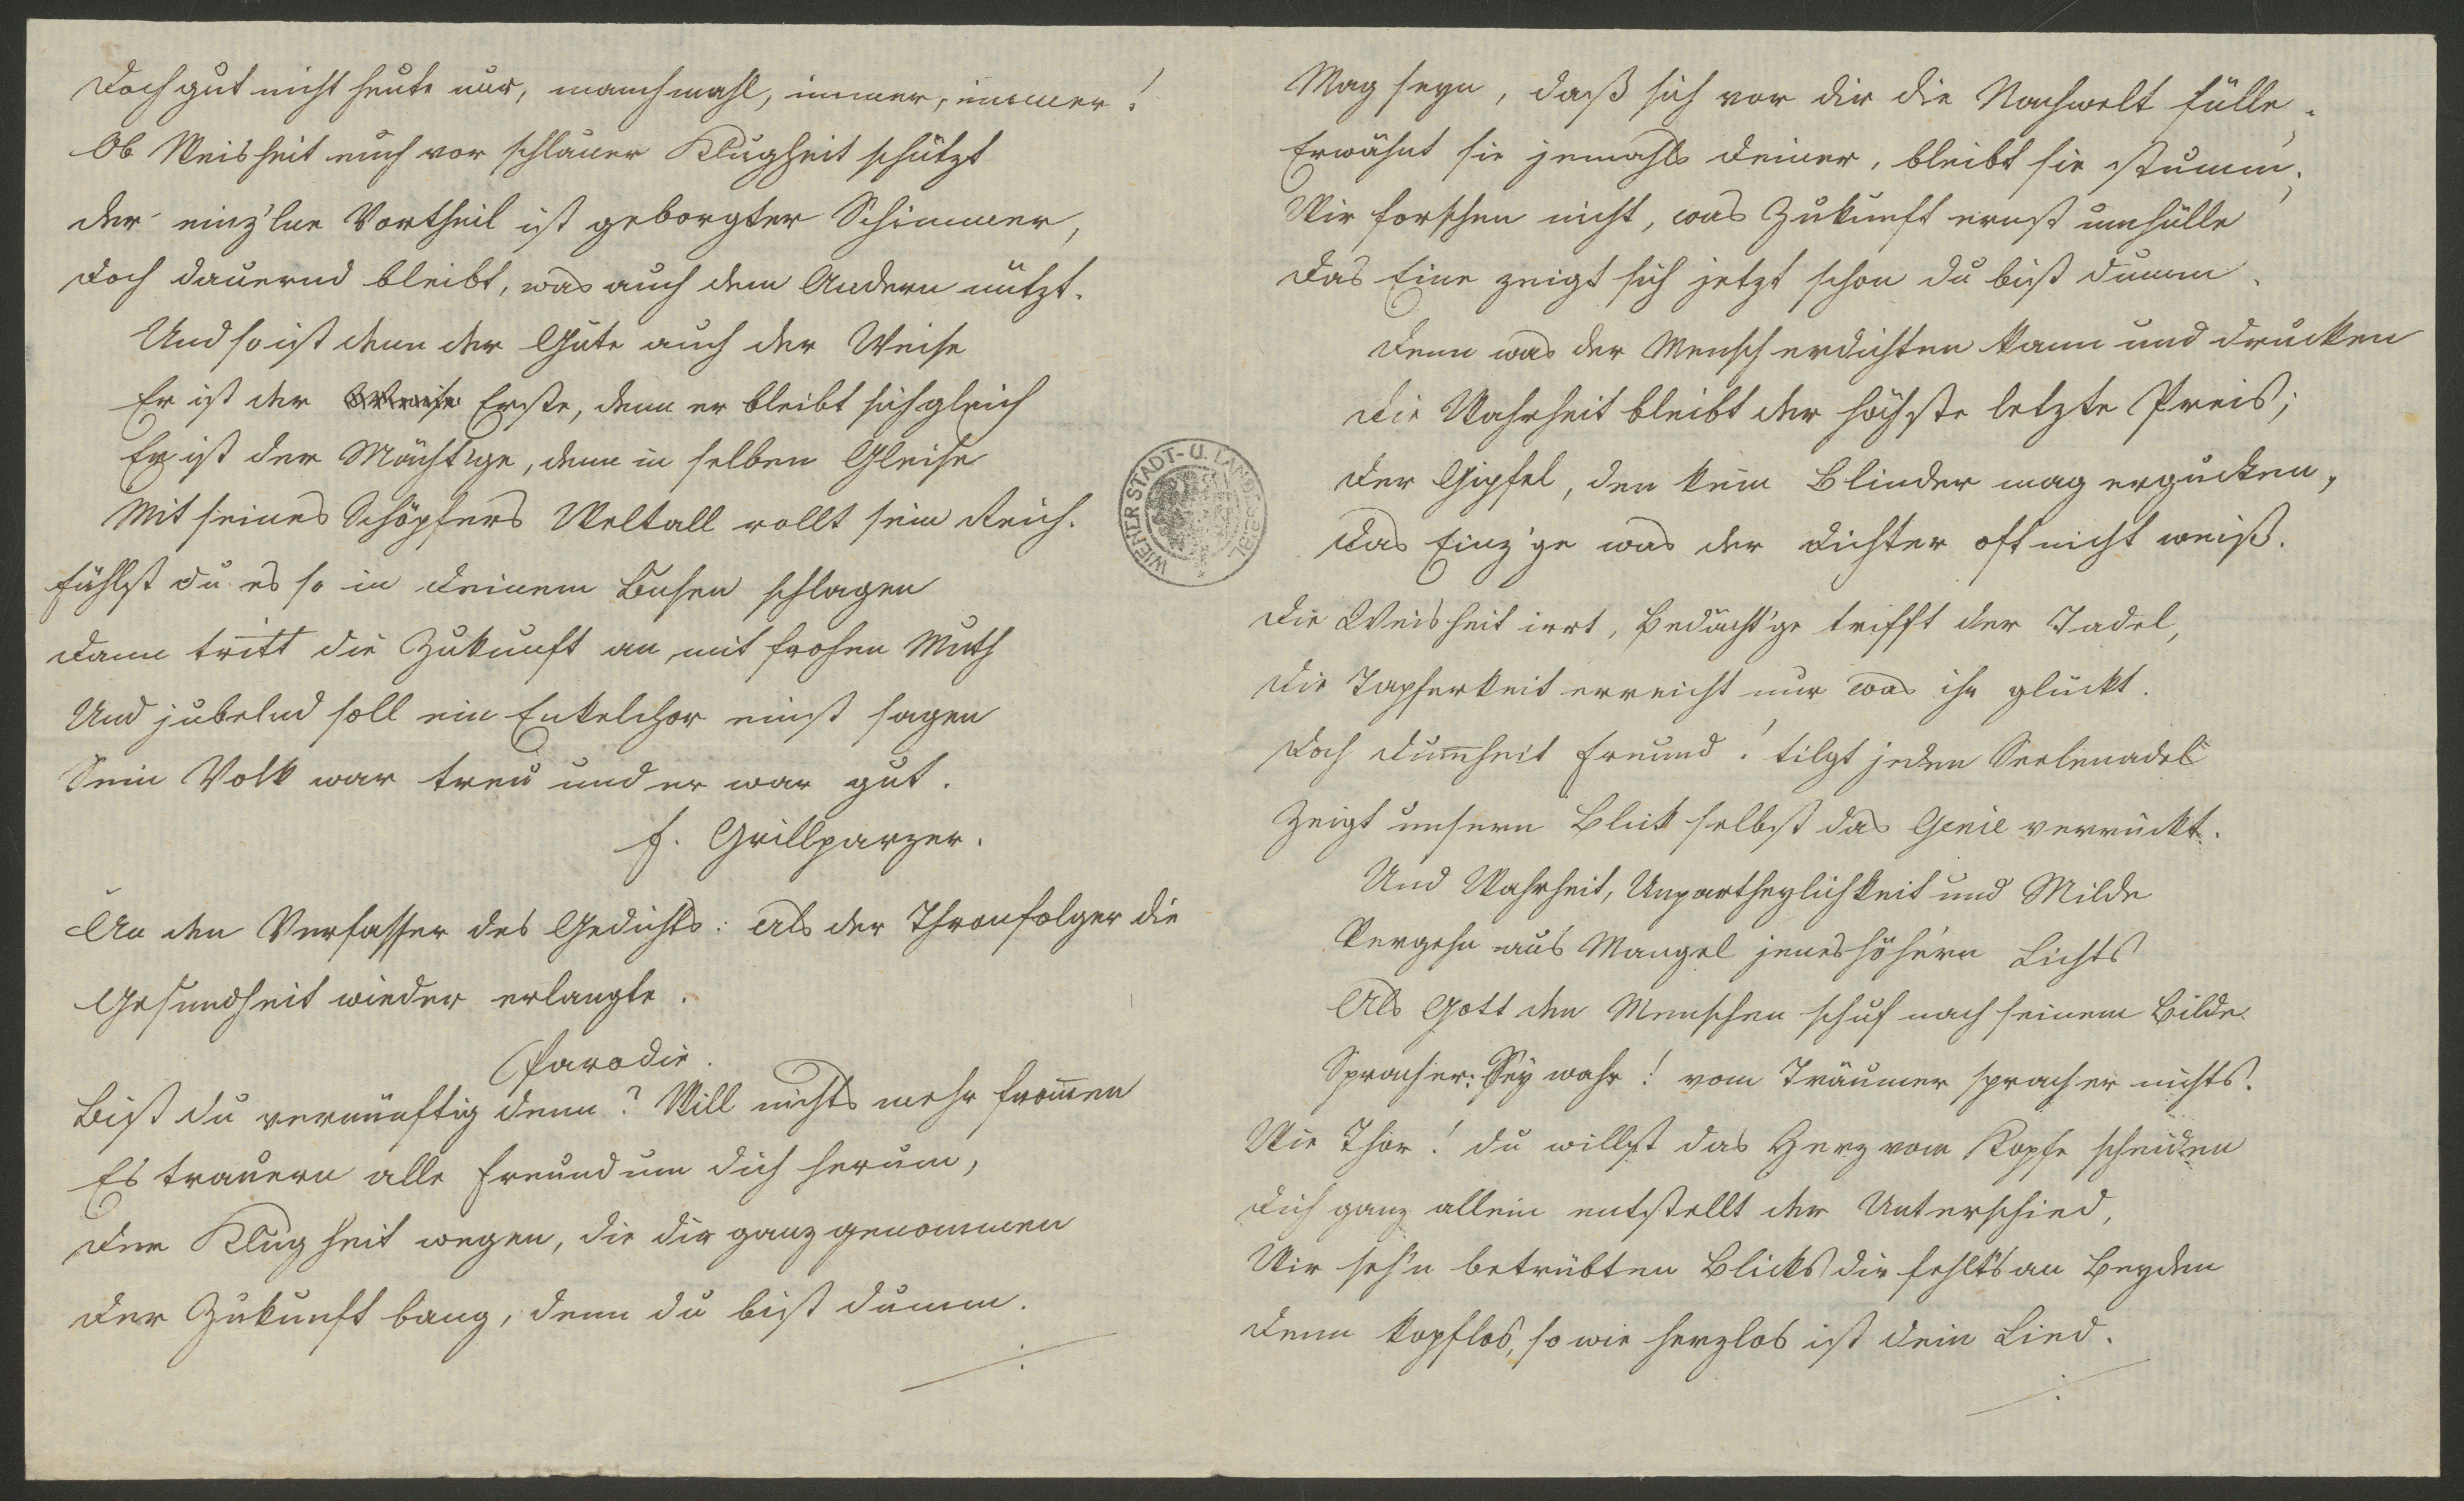 Doch gut nicht heute nur, manchmahl, immer, immer!
Ob Weisheit euch vor schlauer Klugheit schützt
Der einz'lne Vortheil ist geborgter Schimmer,
Doch dauernd bleibt, was auch dem Andern nützt.
Und so ist denn der Gute auch der Weise
Er ist der Weise Erste, denn er bleibt sich gleich
Er ist der Mächt'ge, denn in selben Gleise
Mit seines Schöpfers Weltall rollt sein Reich.
Fühlst du es so in deinem Busen schlagen
Dann tritt die Zukunft an, mit frohen Muth
Und jubelnd soll ein Enkelchor einst sagen
Sein Volk war treu und er war gut.
F. Grillparzer.
An den Verfasser des Gedichts: Als der Thronfolger die
Gesundheit wieder erlangte.
Parodie.
Bist du vernünftig denn? Will nichts mehr fromen
Es trauern alle Freund um dich herum,
Der Klugheit wegen, die dir ganz genommen
Der Zukunft bang, denn du bist dumm.
WIENER STADT- U. LANDESBIBL.
Mag seyn, daß sich vor dir die Nachwelt fülle,
Erwähnt sie jemahls deiner, bleibt sie stumm,
Wir forschen nicht, was Zukunft ernst umhülle
Das Eine zeigt sich jetzt schon du bist dumm.
Denn was der Mensch erdichten kann und drucken
Die Wahrheit bleibt der höchste letzte Preis;
Der Gipfel, den kein Blinder mag ergucken,
Das Einz'ge was der Dichter oft nicht weiß.
Die Weisheit irrt, Bedächt'ge trifft der Tadel,
Die Tapferkeit erreicht nur was ihr glückt.
Doch Dumheit Freund! tilgt jeden Seelenadel
Zeigt unsern Blick selbst das Genie verrückt.
Und Wahrheit, Unpartheylichkeit und Milde
Vergehn aus Mangel jenes höh'rn Lichts
Als Gott den Menschen schuf nach seinem Bilde
Sprach er: Sey wahr! vom Träumer sprach er nichts.
Wie Thor! du willst das Herz vom Kopfe scheiden
Dich ganz allein entstellt der Unterschied,
Wir seh'n betrübten Blicks dir fehlt's an Beyden
Denn kopflos, so wie herzlos ist dein Lied.